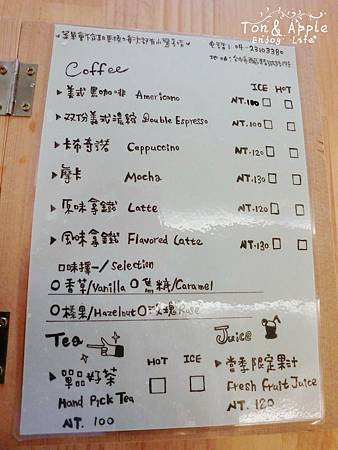 Ton & Apple
Enjoy Life
電話：04-23103380
Coffee
ICE HOT
▸ 美式黑咖啡 Americano NT.100 □ □
▸ 双份美式濃縮 Double Espresso NT.100 □ □
▸ 卡布奇諾 Cappuccino NT.120 □ □
▸ 摩卡 Mocha NT.130 □ □
▸ 原味拿鐵 Latte NT.120 □ □
▸ 風味拿鐵 Flavored Latte NT.130 □ □
口味擇一/Selection
○香草/Vanilla ○焦糖/Caramel
○榛果/Hazelnut ○玫瑰 Rose
Tea
HOT ICE
▸ 單品好茶 □ □
Hand Pick Tea
NT. 100
Juice
▸ 當季限定果汁
Fresh Fruit Juice
NT. 120